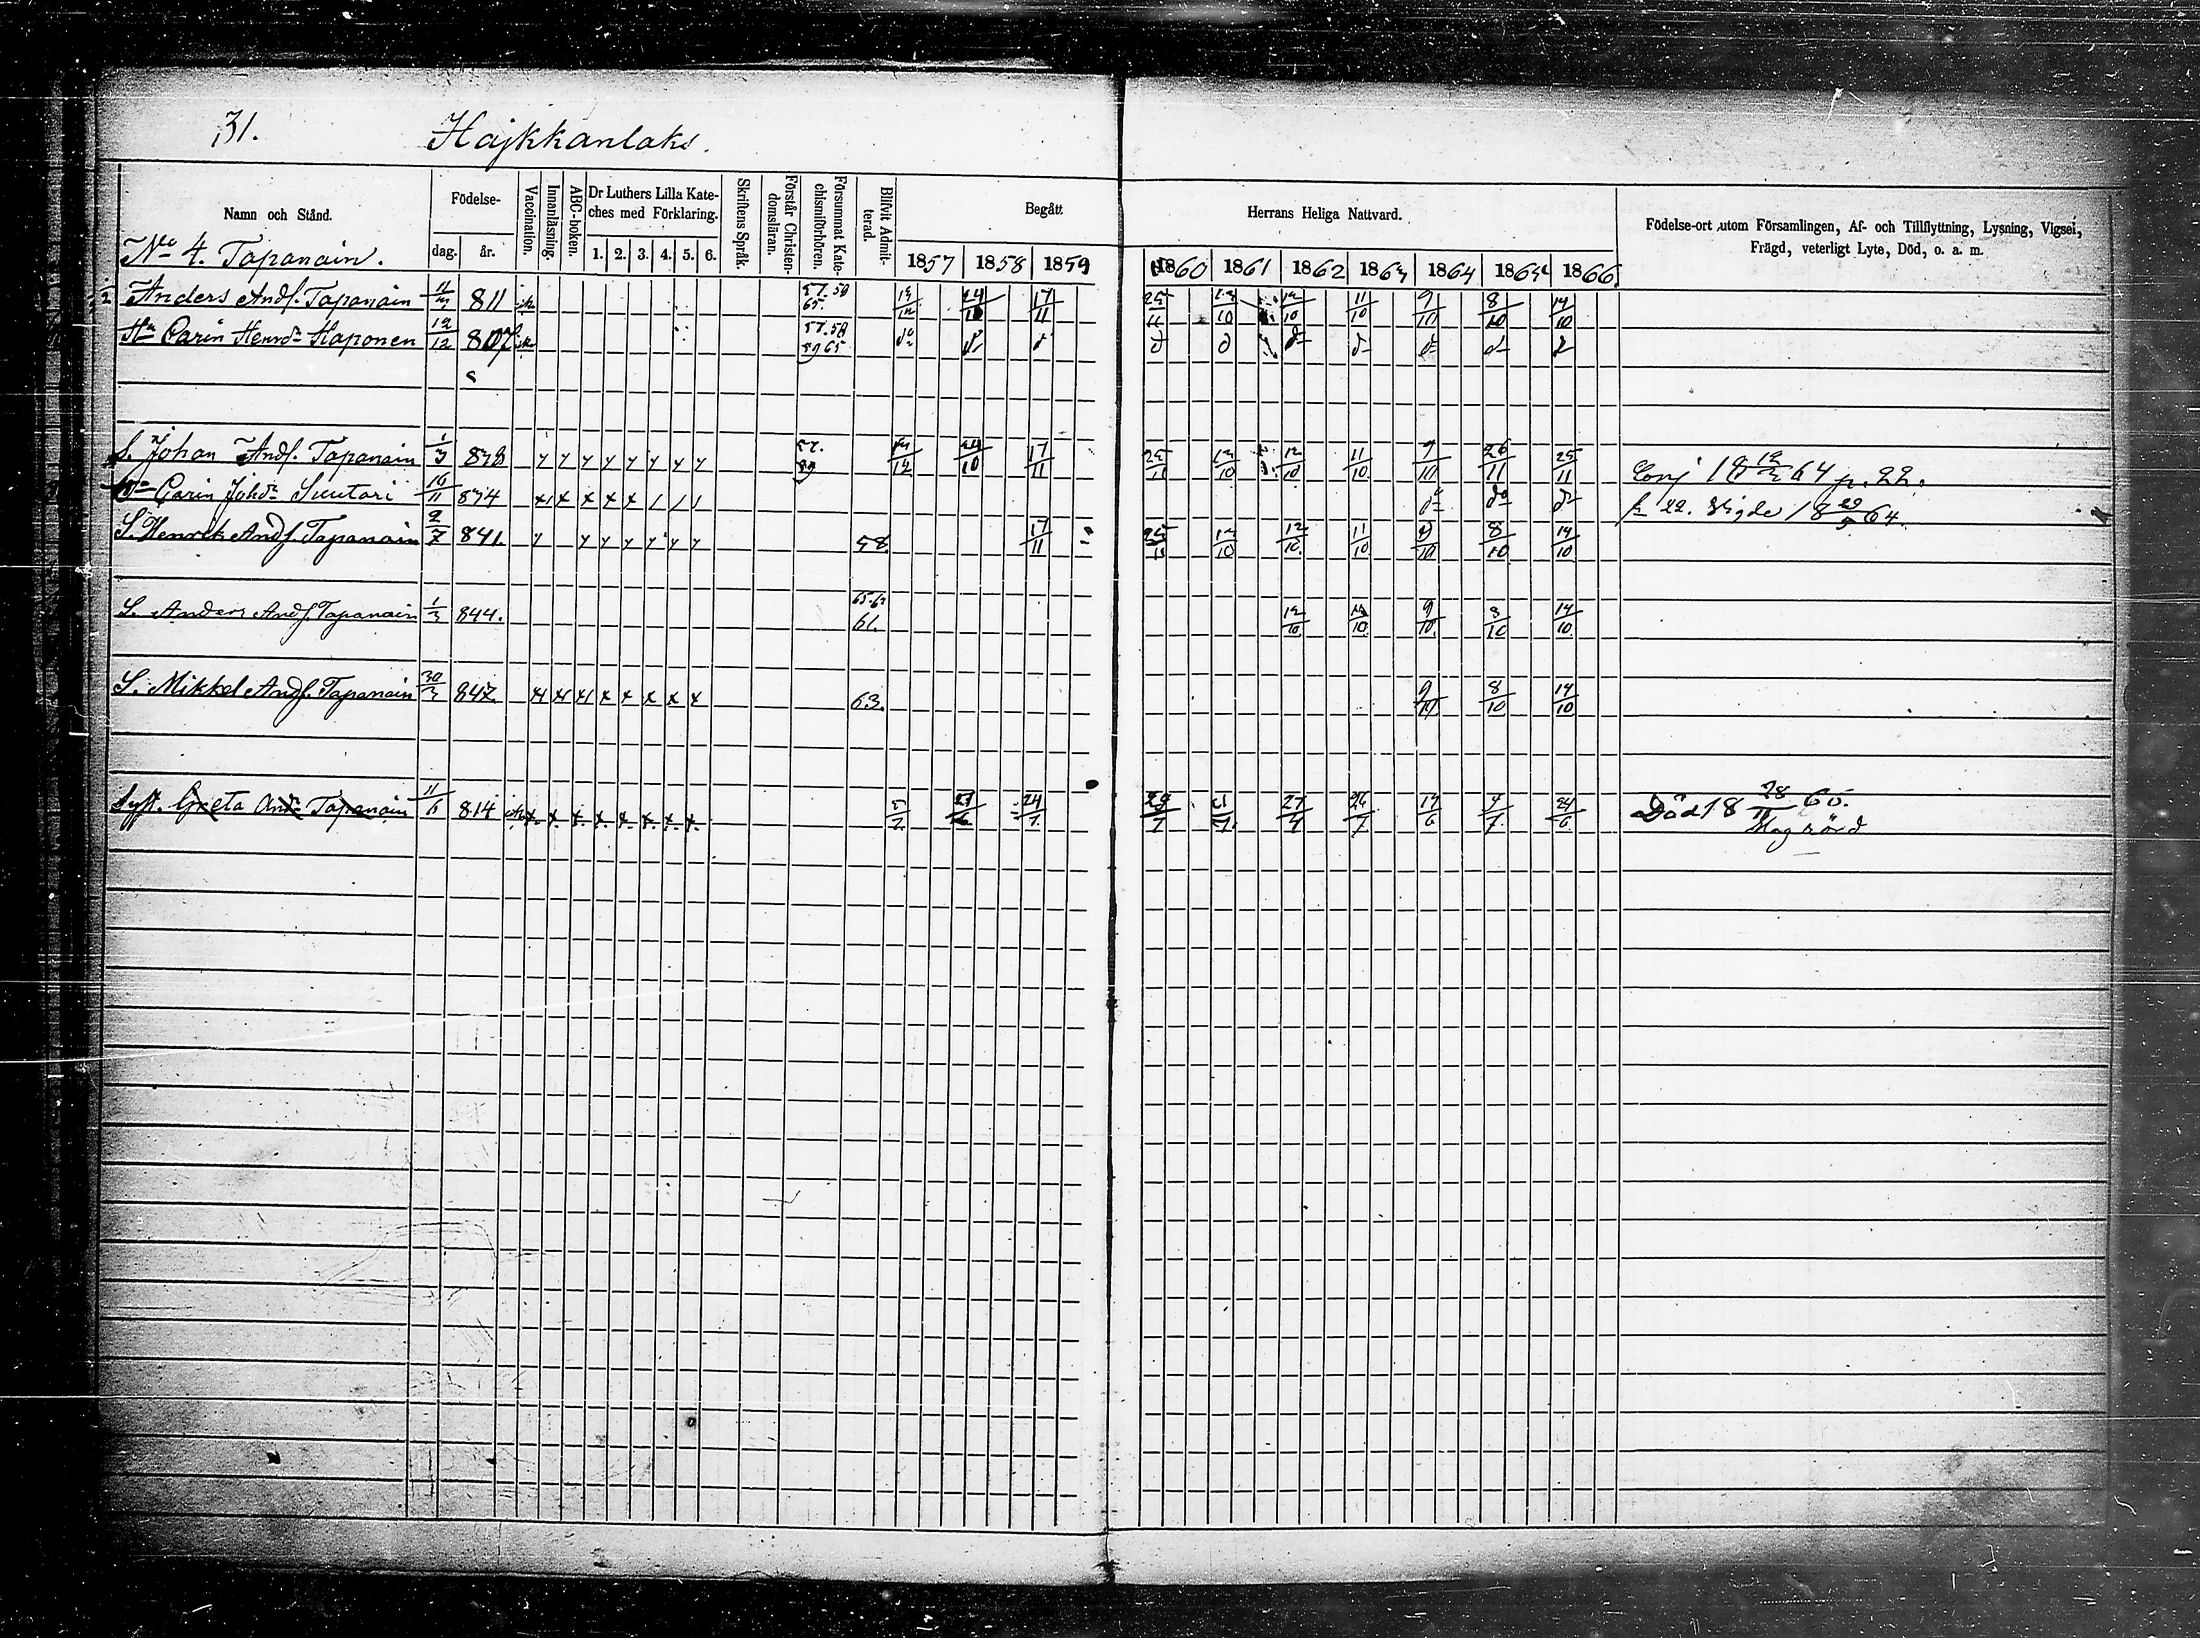 31. Hajkkanlaks.
Namn och Stånd. Födelse- dag. år. Vaccination. Innanläsning. ABC-boken. Dr Luthers Lilla Kateches med Förklaring. 1. 2. 3. 4. 5. 6. Skriftens Språk. Förstår Christendomsläran. Försummat Katechismiförhören. Blifvit Admitterad. Begått Herrans Heliga Nattvard. Födelse-ort utom Församlingen, Af- och Tillflyttning, Lysning, Vigsel, Frägd, veterligt Lyte, Död, o. a. m.
1857 1858 1859 1860 1861 1862 1863 1864 1865 1866.
No 4. Tapanain.
1/2 Anders Andſ. Tapanain 11/3 811 57.58 65. 24/10 17/11 25/11 13/10 12/10 11/10 9/10 8/10 14/10
Hu Carin Henrdr Haponen 12/12 807 57.58 59 65 do d d d d d d d d d
S. Johan Andſ. Tapanain 1/3 838 y y y y y y y y 57. 59 24/10 17/11 25/11 13/10 12/10 11/10 9/10 26/11 25/11 Conj 18 12/3 64 p. 22.
Carin Johdr Suutari 10/11 834 x x x x x / / / do do d fr 22. Vigde 18 64.
S. Henrik Andſ. Tapanain 2/7 841. y y y y y y y 58. 17/11 25/11 13/10 12/10 11/10 9/10 8/10 14/10
S. Anders Andſ. Tapanain 1/3 844. 61. 12/10 11/10 9/10 8/10 14/10
S. Mikkel Andſ. Tapanain 30/3 847. x x x x x x x x 63. 9/10 8/10 14/10
Syſt. Greta Andr Tapanain 11/6 814 x x x x x x x x 24/7 29/7 27/7 26/7 17/6 24/6 Död 18 28/11 65.
Slag rörd